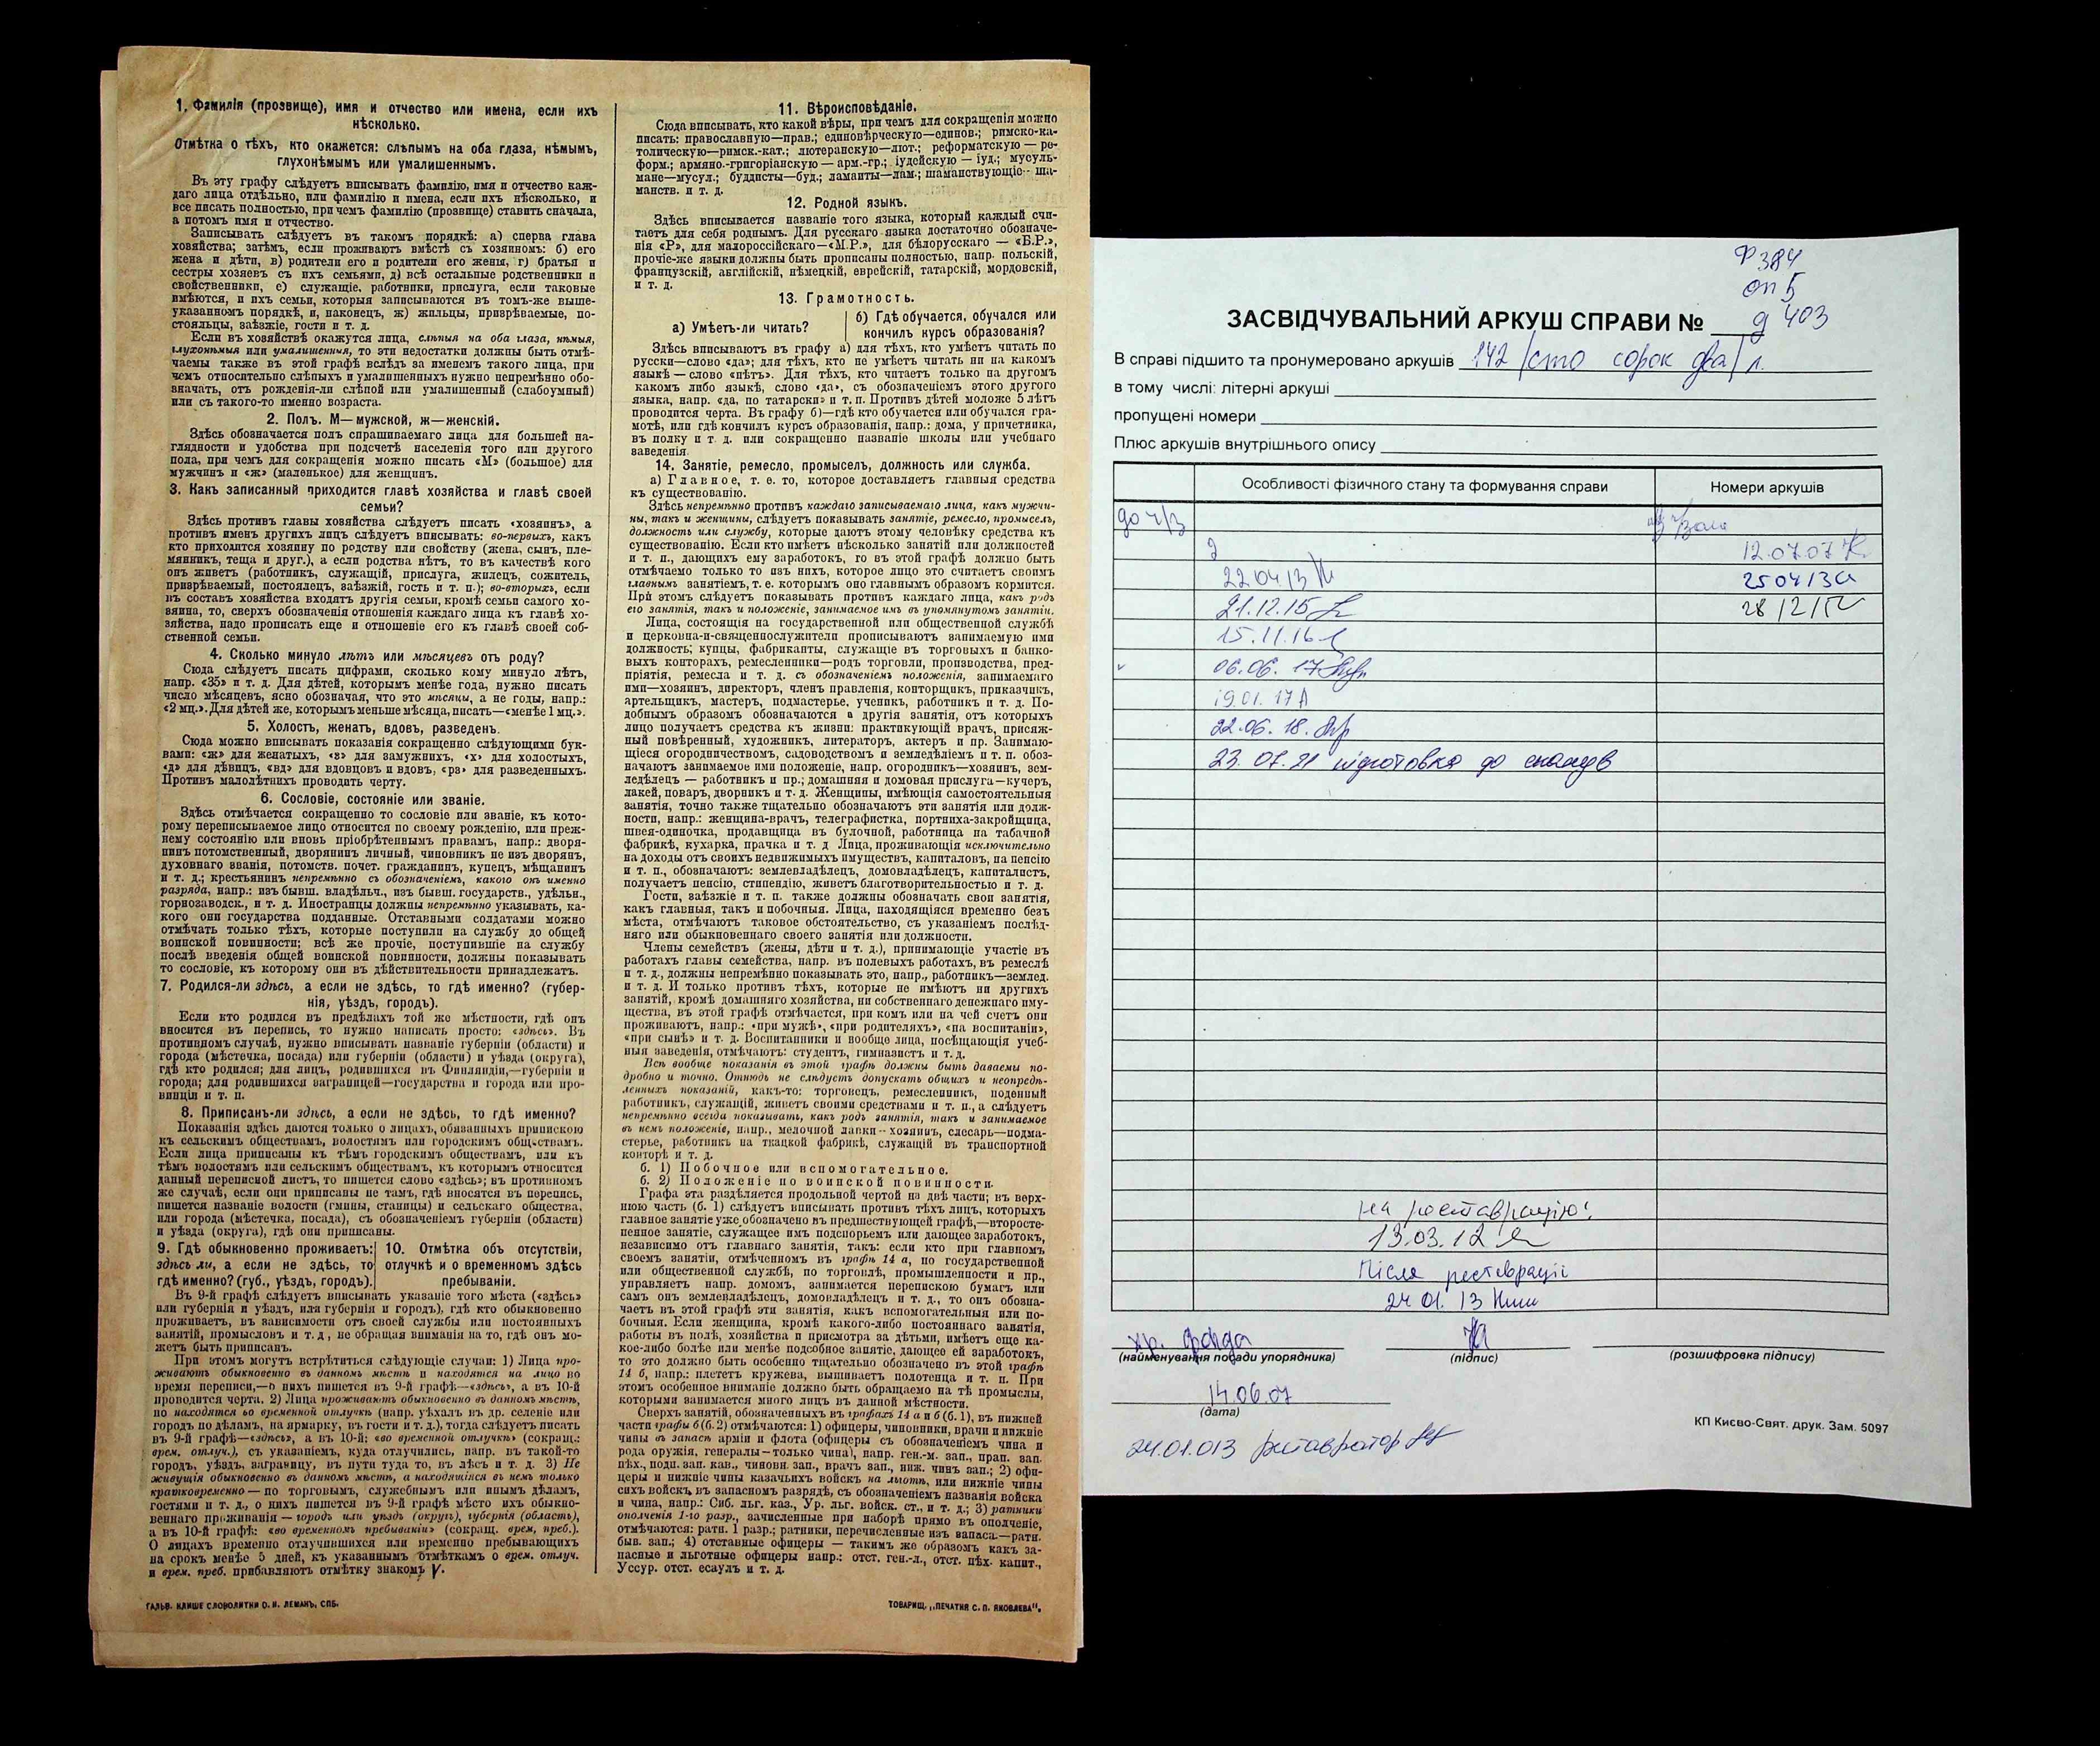 1. Фамилія (прозвище), имя и отчество или имена, если ихъ
нѣсколько.
Отмѣтка о тѣхъ, кто окажется: слѣпымъ на оба глаза, нѣмымъ,
глухонѣмымъ или умалишеннымъ.
Въ эту графу слѣдуетъ вписывать фамилію, имя и отчество каж-
даго лица отдѣльно, или фамилію и имена, если ихъ нѣсколько, и
все писать полностью, при чемъ фамилію (прозвище) ставить сначала,
а потомъ имя и отчество.
Записывать слѣдуетъ въ такомъ порядкѣ: а) сперва глава
хозяйства; затѣмъ, если проживаютъ вмѣстѣ съ хозяиномъ: б) его
жена и дѣти, в) родители его и родители его жены, г) братья и
сестры хозяевъ съ ихъ семьями, д) всѣ остальные родственники и
свойственники, е) служащіе, работники, прислуга, если таковые
имѣются, и ихъ семьи, которыя записываются въ томъ-же выше-
указанномъ порядкѣ, и, наконецъ, ж) жильцы, призрѣваемые, по-
стояльцы, заѣзжіе, гости и т. д.
Если въ хозяйствѣ окажутся лица, слѣпыя на оба глаза, нѣмыя,
глухонѣмыя или умалишенныя, то эти недостатки должны быть отмѣ-
чаемы также въ этой графѣ вслѣдъ за именемъ такого лица, при
чемъ относительно слѣпыхъ и умалишенныхъ нужно непремѣнно обо-
значать, отъ рожденія-ли слѣпой или умалишенный (слабоумный)
или съ такого-то именно возраста.
2. Полъ. М—мужской, ж—женскій.
Здѣсь обозначается полъ спрашиваемаго лица для большей на-
глядности и удобства при подсчетѣ населенія того или другого
пола, при чемъ для сокращенія можно писать «М» (большое) для
мужчинъ и «ж» (маленькое) для женщинъ.
3. Какъ записанный приходится главѣ хозяйства и главѣ своей
семьи?
Здѣсь противъ главы хозяйства слѣдуетъ писать «хозяинъ», а
противъ именъ другихъ лицъ слѣдуетъ вписывать: во-первыхъ, какъ
кто приходится хозяину по родству или свойству (жена, сынъ, пле-
мянникъ, теща и друг.), а если родства нѣтъ, то въ качествѣ кого
онъ живетъ (работникъ, служащій, прислуга, жилецъ, сожитель,
призрѣваемый, постоялецъ, заѣзжій, гость и т. п.); во-вторыхъ, если
въ составъ хозяйства входятъ другія семьи, кромѣ семьи самого хо-
зяина, то, сверхъ обозначенія отношенія каждаго лица къ главѣ хо-
зяйства, надо прописать еще и отношеніе его къ главѣ своей соб-
ственной семьи.
4. Сколько минуло лѣтъ или мѣсяцевъ отъ роду?
Сюда слѣдуетъ писать цифрами, сколько кому минуло лѣтъ,
напр. «35» и т. д. Для дѣтей, которымъ менѣе года, нужно писать
число мѣсяцевъ, ясно обозначая, что это мѣсяцы, а не годы, напр.:
«2 мц.». Для дѣтей же, которымъ меньше мѣсяца, писать—«менѣе 1 мц.».
5. Холостъ, женатъ, вдовъ, разведенъ.
Сюда можно вписывать показанія сокращенно слѣдующими бук-
вами: «ж» для женатыхъ, «з» для замужнихъ, «х» для холостыхъ,
«д» для дѣвицъ, «вд» для вдовцовъ и вдовъ, «рз» для разведенныхъ.
Противъ малолѣтнихъ проводить черту.
6. Сословіе, состояніе или званіе.
Здѣсь отмѣчается сокращенно то сословіе или званіе, къ кото-
рому переписываемое лицо относится по своему рожденію, или преж-
нему состоянію или вновь пріобрѣтеннымъ правамъ, напр.: дворя-
нинъ потомственный, дворянинъ личный, чиновникъ не изъ дворянъ,
духовнаго званія, потомств. почет. гражданинъ, купецъ, мѣщанинъ
и т. д.; крестьянинъ непремѣнно съ обозначеніемъ, какого онъ именно
разряда, напр.: изъ бывш. владѣльч., изъ бывш. государств., удѣльн.,
горнозаводск., и т. д. Иностранцы должны непремѣнно указывать, ка-
кого они государства подданные. Отставными солдатами можно
отмѣчать только тѣхъ, которые поступили на службу до общей
воинской повинности; всѣ же прочіе, поступившіе на службу
послѣ введенія общей воинской повинности, должны показывать
то сословіе, къ которому они въ дѣйствительности принадлежатъ.
7. Родился-ли здѣсь, а если не здѣсь, то гдѣ именно? (губер-
нія, уѣздъ, городъ).
Если кто родился въ предѣлахъ той же мѣстности, гдѣ онъ
вносится въ перепись, то нужно написать просто: «здѣсь». Въ
противномъ случаѣ, нужно вписывать названіе губерніи (области) и
города (мѣстечка, посада) или губерніи (области) и уѣзда (округа),
гдѣ кто родился; для лицъ, родившихся въ Финляндіи,—губерніи и
города; для родившихся заграницей—государства и города или про-
винціи и т. п.
8. Приписанъ-ли здѣсь, а если не здѣсь, то гдѣ именно?
Показанія здѣсь даются только о лицахъ, обязанныхъ припискою
къ сельскимъ обществамъ, волостямъ или городскимъ обществамъ.
Если лица приписаны къ тѣмъ городскимъ обществамъ, или къ
тѣмъ волостямъ или сельскимъ обществамъ, къ которымъ относится
данный переписной листъ, то пишется слово «здѣсь»; въ противномъ
же случаѣ, если они приписаны не тамъ, гдѣ вносятся въ перепись,
пишется названіе волости (гмины, станицы) и сельскаго общества,
или города (мѣстечка, посада), съ обозначеніемъ губерніи (области)
и уѣзда (округа), гдѣ они приписаны.
9. Гдѣ обыкновенно проживаетъ:
здѣсь ли, а если не здѣсь, то
гдѣ именно? (губ., уѣздъ, городъ).
10. Отмѣтка объ отсутствіи,
отлучкѣ и о временномъ здѣсь
пребываніи.
Въ 9-й графѣ слѣдуетъ вписывать указаніе того мѣста («здѣсь»
или губернія и уѣздъ, или губернія и городъ), гдѣ кто обыкновенно
проживаетъ, въ зависимости отъ своей службы или постоянныхъ
занятій, промысловъ и т. д, не обращая вниманія на то, гдѣ онъ мо-
жетъ быть приписанъ.
При этомъ могутъ встрѣтиться слѣдующіе случаи: 1) Лица про-
живаютъ обыкновенно въ данномъ мѣстѣ и находятся на лицо во
время переписи,—о нихъ пишется въ 9-й графѣ—«здѣсь», а въ 10-й
проводится черта. 2) Лица проживаютъ обыкновенно въ данномъ мѣстѣ,
но находятся во временной отлучкѣ (напр. уѣхалъ въ др. селеніе или
городъ по дѣламъ, на ярмарку, въ гости и т. д.), тогда слѣдуетъ писать
въ 9-й графѣ—«здѣсь», а въ 10-й: «во временной отлучкѣ» (сокращ.:
врем. отлуч.), съ указаніемъ, куда отлучились, напр. въ такой-то
городъ, уѣздъ, заграницу, въ пути туда то, въ лѣсъ и т. д. 3) Не
живущія обыкновенно въ данномъ мѣстѣ, а находящіяся въ немъ только
кратковременно — по торговымъ, служебнымъ или инымъ дѣламъ,
гостями и т. д., о нихъ пишется въ 9-й графѣ мѣсто ихъ обыкно-
веннаго проживанія — городъ или уѣздъ (округъ), губернія (область),
а въ 10-й графѣ: «во временномъ пребываніи» (сокращ. врем, преб.).
О лицахъ временно отлучившихся или временно пребывающихъ
на срокъ менѣе 5 дней, къ указаннымъ отмѣткамъ о врем. отлуч.
и врем. преб. прибавляютъ отмѣтку знакомъ V.
ГАЛЬВ. КЛИШЕ СЛОВОЛИТНИ О. И. ЛЕМАНЪ, СПБ.
11. Вѣроисповѣданіе.
Сюда вписывать, кто какой вѣры, при чемъ для сокращенія можно
писать: православную—прав.; единовѣрческую—единов.; римско-ка-
толическую—римск.-кат.; лютеранскую—лют.; реформатскую — ре-
форм.; армяно.-григоріанскую — арм.-гр.; іудейскую — іуд.; мусуль-
мане—мусул.; буддисты—буд.; ламаиты—лам.; шаманствующіе— ша-
манств. и т. д.
12. Родной языкъ.
Здѣсь вписывается названіе того языка, который каждый счи-
таетъ для себя роднымъ. Для русскаго языка достаточно обозначе-
нія «Р», для малороссійскаго—«М.Р.», для бѣлорусскаго — «Б.Р.»,
прочіе-же языки должны быть прописаны полностью, напр. польскій,
французскій, англійскій, нѣмецкій, еврейскій, татарскій, мордовскій,
и т. д.
13. Грамотность.
а) Умѣетъ-ли читать?
б) Гдѣ обучается, обучался или
кончилъ курсъ образованія?
Здѣсь вписываютъ въ графу а) для тѣхъ, кто умѣетъ читать по
русски—слово «да»; для тѣхъ, кто не умѣетъ читать ни на какомъ
языкѣ — слово «нѣтъ». Для тѣхъ, кто читаетъ только на другомъ
какомъ либо языкѣ, слово «да», съ обозначеніемъ этого другого
языка, напр. «да, по татарски» и т. п. Противъ дѣтей моложе 5 лѣтъ
проводится черта. Въ графу б)—гдѣ кто обучается или обучался гра-
мотѣ, или гдѣ кончилъ курсъ образованія, напр.: дома, у причетника,
въ полку и т. д. или сокращенно названіе школы или учебнаго
заведенія.
14. Занятіе, ремесло, промыселъ, должность или служба.
а) Главное, т. е. то, которое доставляетъ главныя средства
къ существованію.
Здѣсь непремѣнно противъ каждаго записываемаго лица, какъ мужчи-
ны, такъ и женщины, слѣдуетъ показывать занятіе, ремесло, промыселъ,
должность или службу, которые даютъ этому человѣку средства къ
существованію. Если кто имѣетъ нѣсколько занятій или должностей
и т. п., дающихъ ему заработокъ, то въ этой графѣ должно быть
отмѣчаемо только то изъ нихъ, которое лицо это считаетъ своимъ
главнымъ занятіемъ, т. е. которымъ оно главнымъ образомъ кормится.
При этомъ слѣдуетъ показывать противъ каждаго лица, какъ родъ
его занятія, такъ и положеніе, занимаемое имъ въ упомянутомъ занятіи.
Лица, состоящія на государственной или общественной службѣ
и церковно-и-священнослужители прописываютъ занимаемую ими
должность; купцы, фабриканты, служащіе въ торговыхъ и банко-
выхъ конторахъ, ремесленники—родъ торговли, производства, пред-
пріятія, ремесла и т. д. съ обозначеніемъ положенія, занимаемаго
ими—хозяинъ, директоръ, членъ правленія, конторщикъ, приказчикъ,
артельщикъ, мастеръ, подмастерье, ученикъ, работникъ и т. д. По-
добнымъ образомъ обозначаются а другія занятія, отъ которыхъ
лицо получаетъ средства къ жизни: практикующій врачъ, присяж-
ный повѣренный, художникъ, литераторъ, актеръ и пр. Занимаю-
щіеся огородничествомъ, садоводствомъ и земледѣліемъ и т. п. обоз-
начаютъ занимаемое ими положеніе, напр. огородникъ—хозяинъ, зем-
ледѣлецъ — работникъ и пр.; домашняя и домовая прислуга—кучеръ,
лакей, поваръ, дворникъ и т. д. Женщины, имѣющія самостоятельныя
занятія, точно также тщательно обозначаютъ эти занятія или долж-
ности, напр.: женщина-врачъ, телеграфистка, портниха-закройщица,
швея-одиночка, продавщица въ булочной, работница на табачной
фабрикѣ, кухарка, прачка и т. д Лица, проживающія исключительно
на доходы отъ своихъ недвижимыхъ имуществъ, капиталовъ, на пенсію
и т. п., обозначаютъ: землевладѣлецъ, домовладѣлецъ, капиталистъ,
получаетъ пенсію, стипендію, живетъ благотворительностью и т. д.
Гости, заѣзжіе и т. п. также должны обозначать свои занятія,
какъ главныя, такъ и побочныя. Лица, находящіяся временно безъ
мѣста, отмѣчаютъ таковое обстоятельство, съ указаніемъ послѣд-
няго или обыкновеннаго своего занятія или должности.
Члены семействъ (жены, дѣти и т. д.), принимающіе участіе въ
работахъ главы семейства, напр. въ полевыхъ работахъ, въ ремеслѣ
и т. д., должны непремѣнно показывать это, напр., работникъ—землед.
и т. д. И только противъ тѣхъ, которые не имѣютъ ни другихъ
занятій, кромѣ домашняго хозяйства, ни собственнаго денежнаго иму-
щества, въ этой графѣ отмѣчается, при комъ или на чей счетъ они
проживаютъ, напр.: «при мужѣ», «при родителяхъ», «на воспитаніи»,
«при сынѣ» и т. д. Воспитанники и вообще лица, посѣщающія учеб-
ныя заведенія, отмѣчаютъ: студентъ, гимназистъ и т. д.
Всѣ вообще показанія въ этой графѣ должны быть даваемы по-
дробно и точно. Отнюдь не слѣдуетъ допускать общихъ и неопредѣ-
ленныхъ показаній, какъ-то: торговецъ, ремесленникъ, поденный
работникъ, служащій, живетъ своими средствами и т. п., а слѣдуетъ
непремѣнно всегда показывать, какъ родъ занятія, такъ и занимаемое
въ немъ положеніе, напр., мелочной лавки—хозяинъ, слесарь—подма-
стерье, работникъ на ткацкой фабрикѣ, служащій въ транспортной
конторѣ и т. д.
б. 1) Побочное или вспомогательное.
б. 2) Положеніе по воинской повинности.
Графа эта раздѣляется продольной чертой на двѣ части; въ верх-
нюю часть (б. 1) слѣдуетъ вписывать противъ тѣхъ лицъ, которыхъ
главное занятіе уже обозначено въ предшествующей графѣ,—второсте-
пенное занятіе, служащее имъ подспорьемъ или дающее заработокъ,
независимо отъ главнаго занятія, такъ: если кто при главномъ
своемъ занятіи, отмѣченномъ въ графѣ 14 а, по государственной
или общественной службѣ, по торговлѣ, промышленности и пр.,
управляетъ напр. домомъ, занимается перепискою бумагъ или
самъ онъ землевладѣлецъ, домовладѣлецъ и т. д., то онъ обозна-
чаетъ въ этой графѣ эти занятія, какъ вспомогательныя или по-
бочныя. Если женщина, кромѣ какого-либо постояннаго занятія,
работы въ полѣ, хозяйства и присмотра за дѣтьми, имѣетъ еще ка-
кое-либо болѣе или менѣе подсобное занятіе, дающее ей заработокъ,
то это должно быть особенно тщательно обозначено въ этой графѣ
14 б, напр.: плететъ кружева, вышиваетъ полотенца и т. п. При
этомъ особенное вниманіе должно быть обращаемо на тѣ промыслы,
которыми занимается много лицъ въ данной мѣстности.
Сверхъ занятій, обозначенныхъ въ графахъ 14 а и б (б. 1), въ нижней
части графы б (б. 2) отмѣчаются: 1) офицеры, чиновники, врачи и нижніе
чины въ запасѣ арміи и флота (офицеры съ обозначеніемъ чина и
рода оружія, генералы—только чина), напр. ген.-м. зап., прап. зап.
пѣх., подп. зап. кав., чиновн. зап., врачъ зап., ниж. чинъ зап.; 2) офи-
церы и нижніе чины казачьихъ войскъ на льготѣ, или нижніе чины
сихъ войскъ, въ запасномъ разрядѣ, съ обозначеніемъ названія войска
и чина, напр.: Сиб. льг. каз., Ур. льг. войск. ст., и т. д.; 3) ратники
ополченія 1-го разр., зачисленные при наборѣ прямо въ ополченіе,
отмѣчаются: ратн. 1 разр.; ратники, перечисленные изъ запаса:—ратн.
быв. зап.; 4) отставные офицеры — такимъ же образомъ какъ за-
пасные и льготные офицеры напр.: отст. ген.-л., отст. пѣх. капит.,
Уссур. отст. есаулъ и т. д.
ТОВАРИЩ. „ПЕЧАТНЯ С. П. ЯКОВЛЕВА".
Ф 384
оп 5
ЗАСВІДЧУВАЛЬНИЙ АРКУШ СПРАВИ № д 403
В справі підшито та пронумеровано аркушів 142 /сто сорок два/ л.
в тому числі: літерні аркуші
пропущені номери
Плюс аркушів внутрішнього опису
Особливості фізичного стану та формування справи Номери аркушів
до ч/з
12.07.07
22.04.13 25.04.13
21.12.15 28/12/15
15.11.16
06.06.17
19.01.17
22.06.18.
23.07.21 підготовка до сканув
на реставрацію:
13.03.12
Після реставрації
24.01.13
хр. фонда
(найменування посади упорядника) (підпис) (розшифровка підпису)
14.06.07
(дата)
КП Києво-Свят. друк. Зам. 5097
24.01.013 реставратор